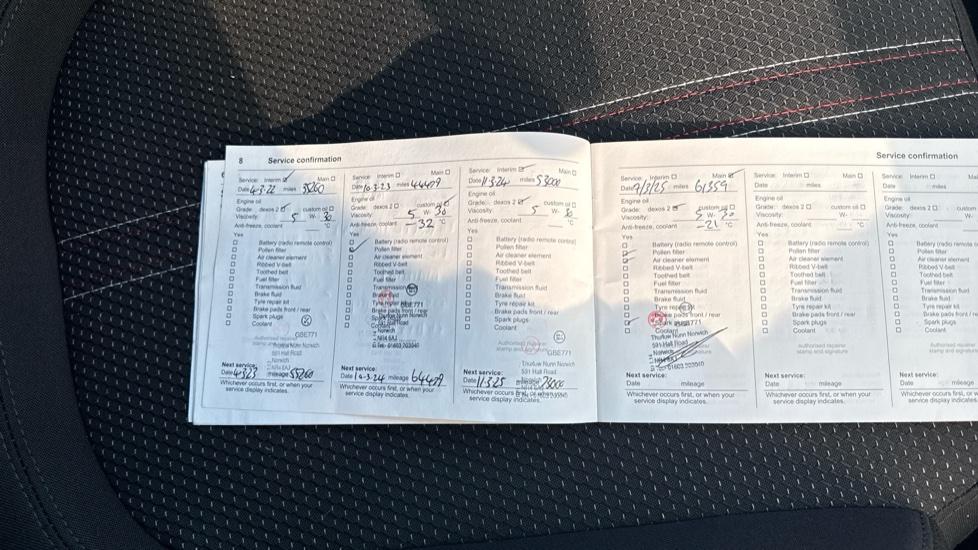 8 Service confirmation
Service: Interim Main
Date 4-3-22 miles 35260
Engine oil
Grade: dexos 2 custom oil
Viscosity: 5 W- 30
Anti-freeze, coolant °C
Yes
Battery (radio remote control)
Pollen filter
Air cleaner element
Ribbed V-belt
Toothed belt
Fuel filter
Transmission fluid
Brake fluid
Tyre repair kit
Brake pads front / rear
Spark plugs
Coolant
GBE771
Authorised repairer
Thurlow Nunn Norwich
591 Hall Road
Norwich
NR4 6AJ
Next service:
mileage 55260
Whichever occurs first, or when your
service display indicates.
Service: Interim Main
Date 10-3-23 miles 44409
Engine oil
Grade: dexos 2 custom oil
Viscosity: 5 W- 30
Anti-freeze, coolant -32 °C
Yes
Battery (radio remote control)
Pollen filter
Air cleaner element
Ribbed V-belt
Toothed belt
Fuel filter
Transmission fluid
Brake fluid
Tyre repair kit
Brake pads front / rear
GBE771
Thurlow Nunn Norwich
591 Hall Road
Norwich
NR4 6AJ
Tel: 01603 203040
Next service:
Date 10-3-24 mileage 64409
Whichever occurs first, or when your
service display indicates.
Service: Interim Main
Date 11-3-24 miles 53000
Engine oil
Grade: dexos 2 custom oil
Viscosity: 5 W- 30
Anti-freeze, coolant °C
Yes
Battery (radio remote control)
Pollen filter
Air cleaner element
Ribbed V-belt
Toothed belt
Fuel filter
Transmission fluid
Brake fluid
Tyre repair kit
Brake pads front / rear
Spark plugs
Coolant
Authorised repairer
stamp and signature
GBE771
Thurlow Nunn Norwich
591 Hall Road
Next service:
Date 11-3-25 mileage 73000
Whichever occurs first, or when your
service display indicates.
Service confirmation
Service: Interim Main
Date 7/3/25 miles 61359
Engine oil
Grade: dexos 2 custom oil
Viscosity: 5 W- 30
Anti-freeze, coolant -21 °C
Yes
Battery (radio remote control)
Pollen filter
Air cleaner element
Ribbed V-belt
Toothed belt
Fuel filter
Transmission fluid
Brake fluid
Tyre repair kit
Brake pads front / rear
Spark plugs
Coolant
Thurlow Nunn Norwich
591 Hall Road
Norwich
Tel: 01603 203040
Next service:
Date mileage
Whichever occurs first, or when your
service display indicates.
Service: Interim Main
Date miles
Engine oil
Grade: dexos 2 custom oil
Viscosity: W-
Anti-freeze, coolant °C
Yes
Battery (radio remote control)
Pollen filter
Air cleaner element
Ribbed V-belt
Toothed belt
Fuel filter
Transmission fluid
Brake fluid
Tyre repair kit
Brake pads front / rear
Spark plugs
Coolant
Authorised repairer
stamp and signature
Next service:
Date mileage
Whichever occurs first, or when your
service display indicates.
Service: Interim
Date miles
Engine oil
Grade: dexos 2 custom
Viscosity: W-
Anti-freeze, coolant
Yes
Battery (radio remote control)
Pollen filter
Air cleaner element
Ribbed V-belt
Toothed belt
Fuel filter
Transmission fluid
Brake fluid
Tyre repair kit
Brake pads front / rear
Spark plugs
Coolant
Authorised repairer
stamp and signature
Next service:
Date mileage
Whichever occurs first, or
service display indicates.